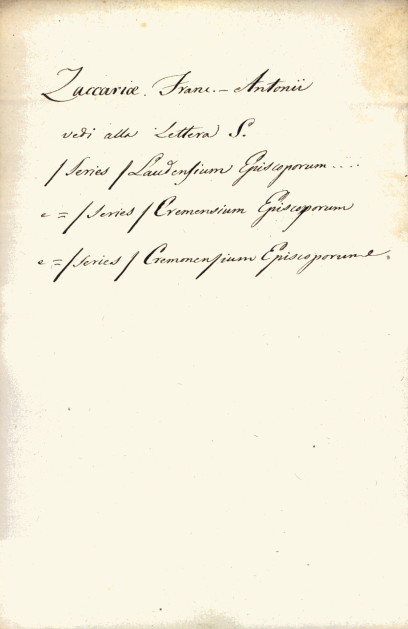 Zaccariæ. Franc.– Antonii
vedi alla Lettera S.
/Series/ Laudensium Episcoporum....
e = /Series/ Cremensium Episcoporum
e = /Series/ Cremonensium Episcoporum